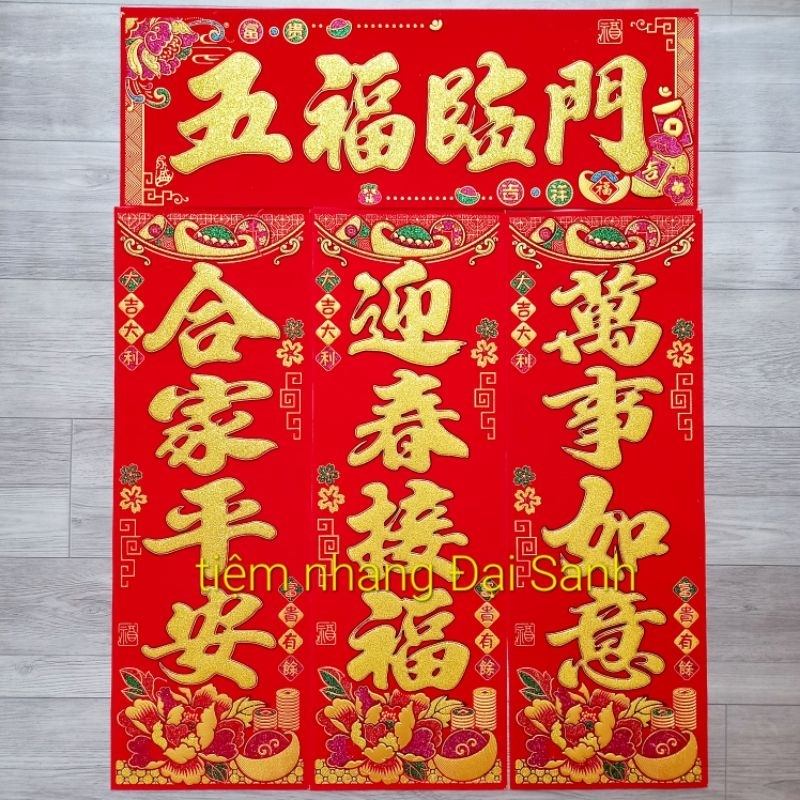 富貴
五福臨門
吉
永盛
吉祥福
大吉大利
合家平安
富貴有餘
大吉大利
迎春接福
富貴有餘
大吉大利
萬事如意
富貴有餘
tiệm nhang Đại Sanh